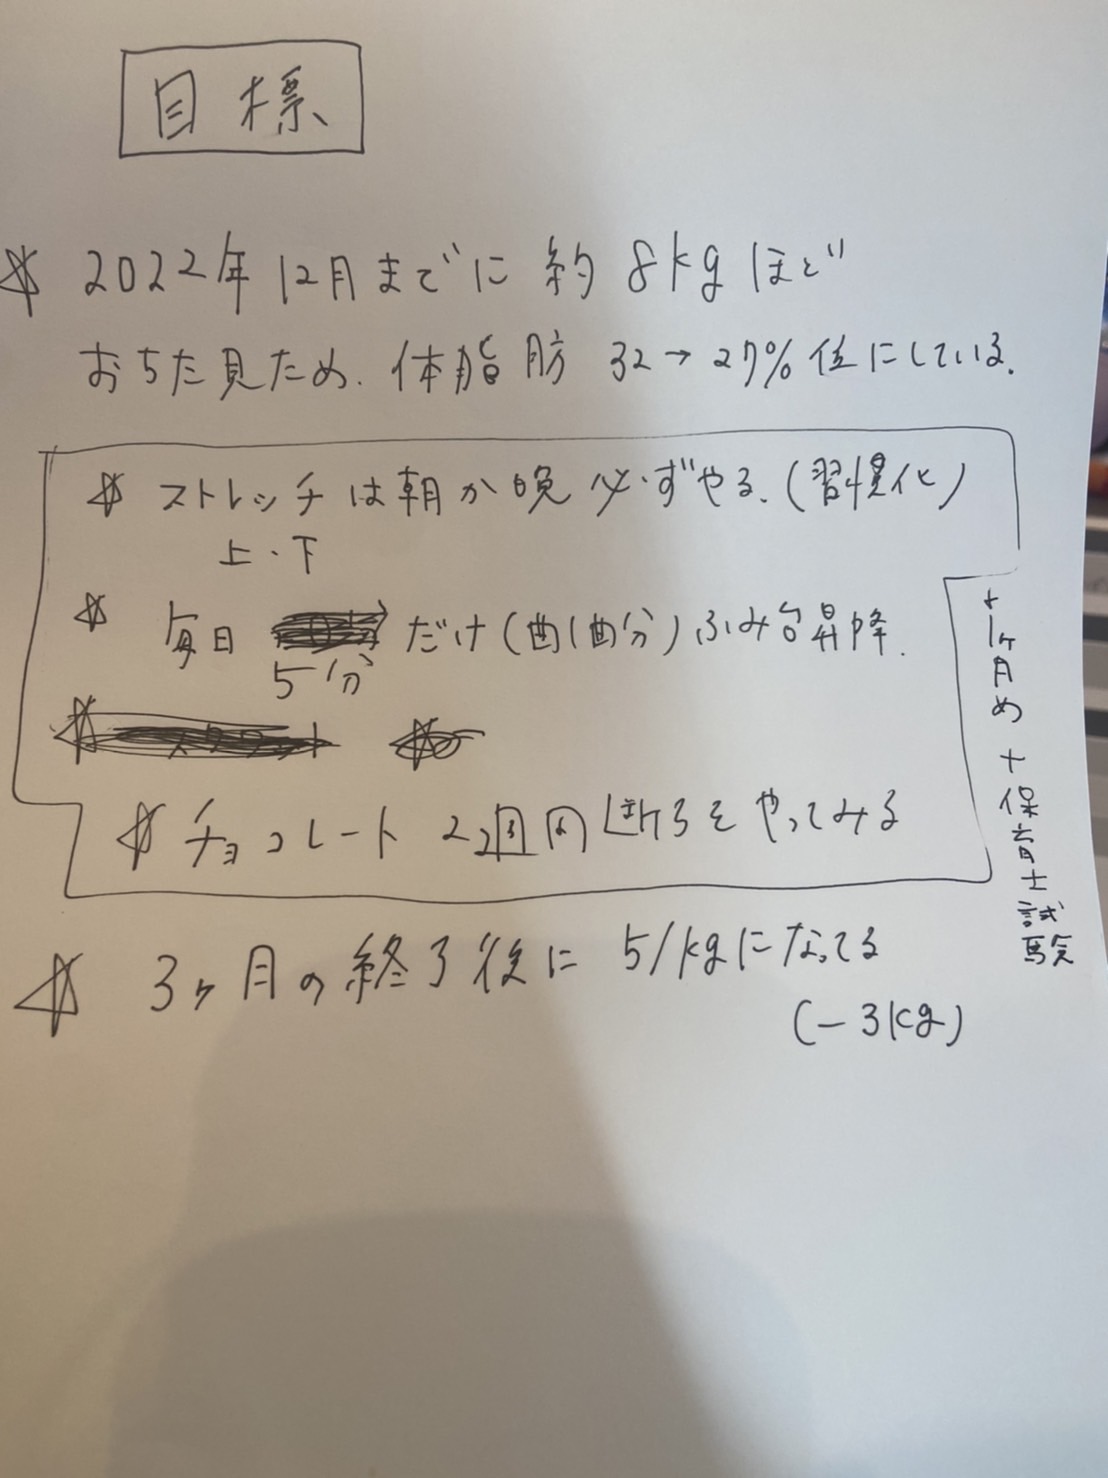 目標
☆ 2022年12月までに 約8kgほど
おちた見ため. 体脂肪 32→27%位にしている.
☆ ストレッチは朝か晩 必ずやる.(習慣化)
上・下
☆ 毎日 だけ( )ふみ台昇降.
5分
☆ チョコレート 2週間断ちをやってみる
←1ヶ月め+保育士試験
☆ 3ヶ月の終了後に 51kgになってる
(-3kg)